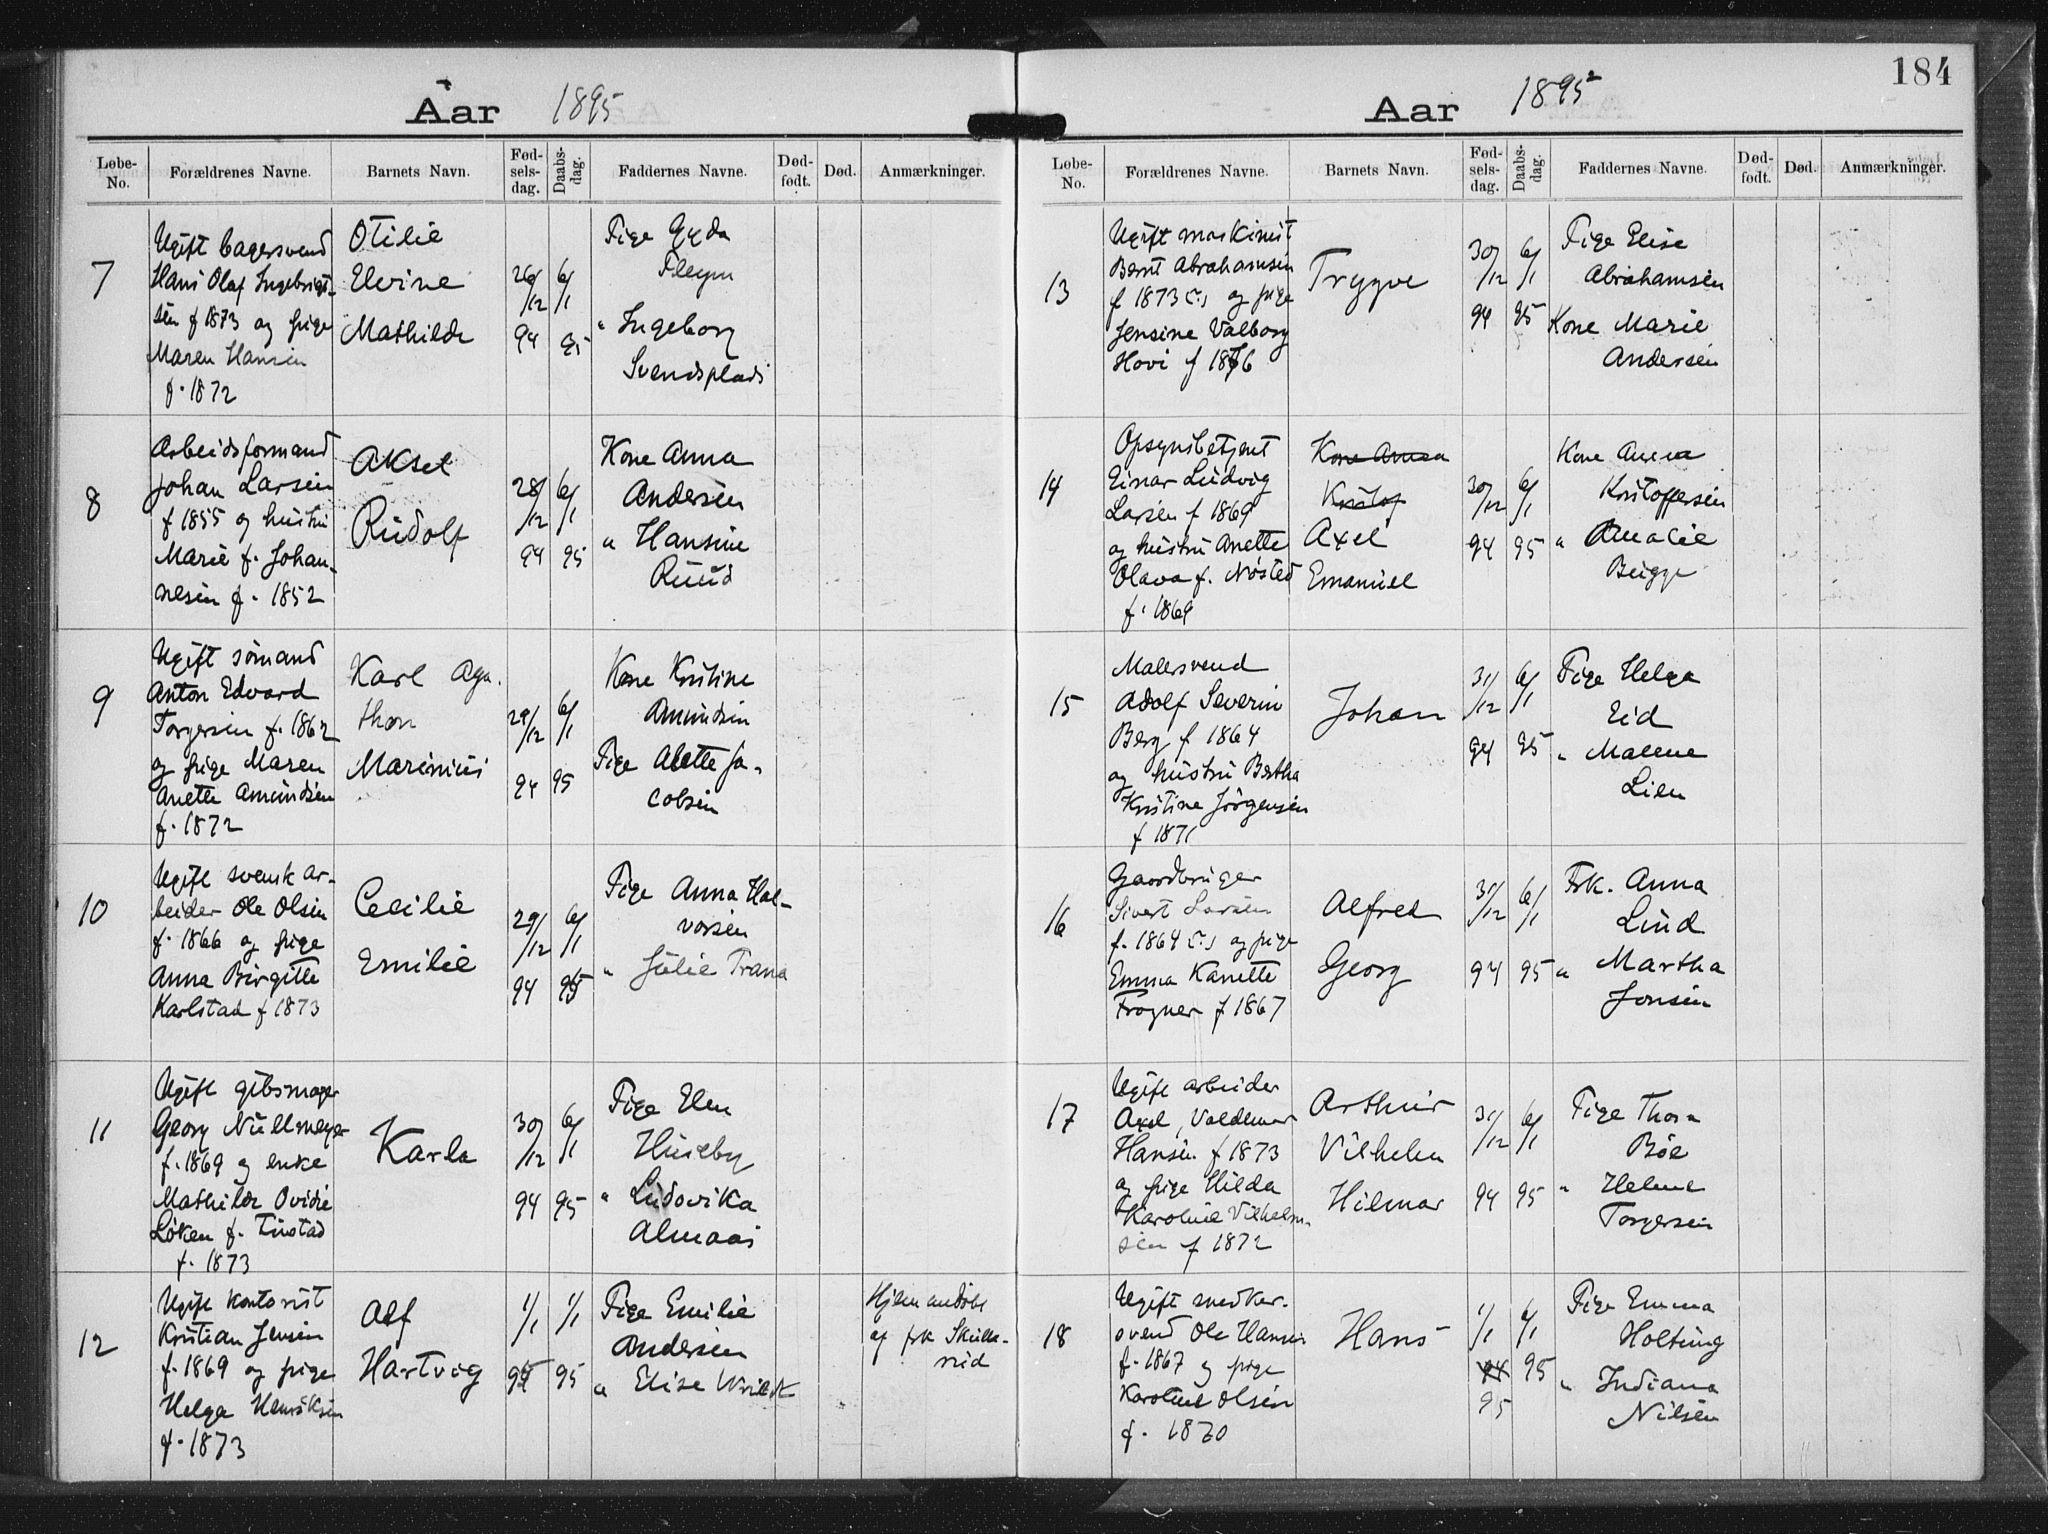 Aar 1895
Løbe-No. Forældrenes Navne. Barnets Navn. Fød-sels-dag. Daabs-dag. Faddernes Navne. Død-født. Død. Anmærkninger.
7
Ugift bagersvend
Hans Olaf Ingebrigt-
sen f 1873 og pige
Maren Hansen
f. 1872
Otilie
Elvine
Mathilde
26/12 94
6/1 95
Pige Gyda
" Ingeborg
8
Arbeidsformand
Johan Larsen
f 1855 og hustru
Marie f. Johan-
nesen f. 1852
Aksel
Rudolf
28/12 94
6/1 95
Kone Anna
Andersen
" Hansine
Ruud
9
Ugift sømand
Anton Edvard
Torgersen f. 1862
og pige Maren
Anette Amundsen
f. 1872
Karl Aga-
thon
Marinius
29/12 94
6/1 95
Kone Kristine
Amundsen
Pige Alette Ja-
cobsen
10
Ugift svensk ar-
beider Ole Olsen
f. 1866 og pige
Anna Birgitte
Karlstad f 1873
Cecilie
Emilie
29/12 94
6/1 95
Pige Anna Hal-
vorsen
" Julie Trana
11
Ugift gibsmager
Georg Nullmeyer
f. 1869 og enke
Mathilde Ovidie
Løken f. Tustad
f. 1873
Karla
30/12 94
6/1 95
Pige Elen
Huseby
" Ludovika
Almaas
12
Ugift kontorist
Kristian Jensen
f. 1869 og pige
Helga Henriksen
f. 1873
Alf
Hartvig
1/1 95
1/1 95
Pige Emilie
Andersen
" Elise
Hjemmedøbt
af frk
184
Aar 1895
Løbe-No. Forældrenes Navne. Barnets Navn. Fød-sels-dag. Daabs-dag. Faddernes Navne. Død-født. Død. Anmærkninger.
13
Ugift maskinist
Bernt Abrahamsen
f 1873 og pige
Jensine Valborg
Hovi f 1876
Trygve
30/12 94
6/1 95
Pige Elise
Abrahamsen
Kone Marie
Andersen
14
Opsynsbetjent
Einar Ludvig
Larsen f 1869
og hustru Anette
Olava f. Nøsted
f. 1869
Kone Anna
Kristof
Axel
Emanuel
30/12 94
6/1 95
Kone Anna
Kristoffersen
" Amalie
Bugge
15
Malersvend
Adolf Severin
Berg f 1864
og hustru Bertha
Kristine Jørgensen
f 1871
Johan
31/12 94
6/1 95
Pige Helga
Eid
" Malene
Lien
16
Gaardbruger
Sivert Larsen
f. 1864 og pige
Emma Kanette
Frogner f 1867
Alfred
Georg
31/12 94
6/1 95
Frk. Anna
Lund
" Martha
Jonsen
17
Ugift arbeider
Axel Valdemar
Hansen f 1873
og pige Hilda
Karoline Vilhelm-
sen f 1872
Arthur
Vilhelm
Hilmar
31/12 94
6/1 95
Pige Thora
Bøe
" Helene
Torgersen
18
Ugift snedker-
svend Ole Hansen
f. 1867 og pige
Karoline Olsen
f. 1870
Hans
1/1 94 95
6/1 95
Pige Emma
Holtung
" Indiana
Nilsen